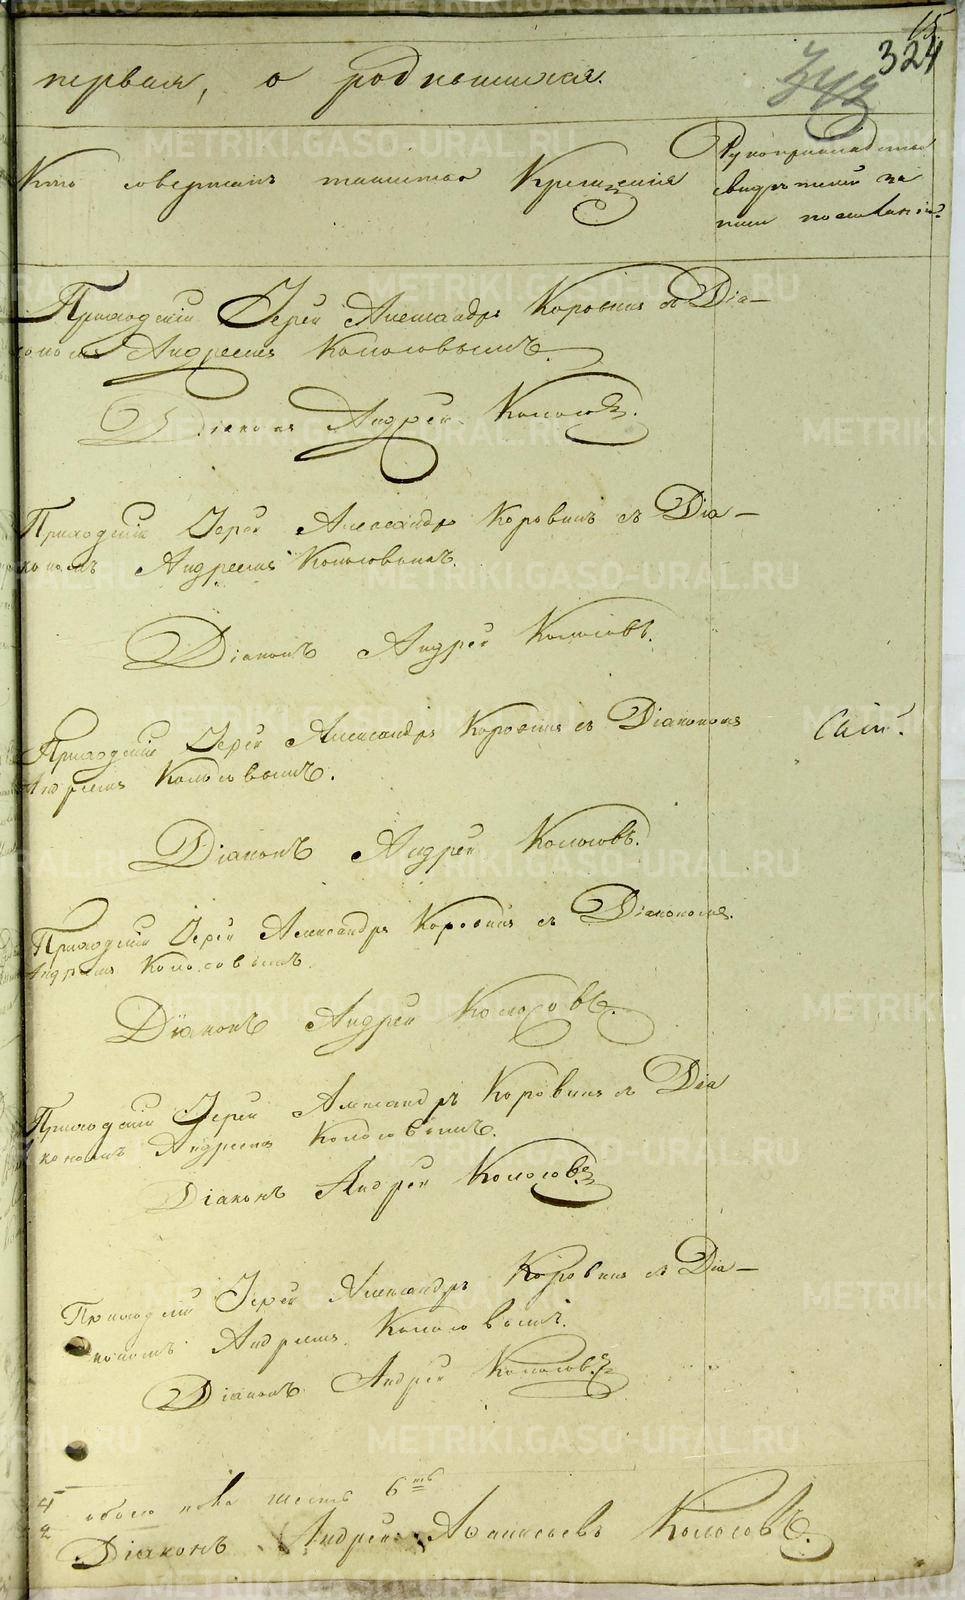 15
324
первая, о родившихся.
Кто совершалъ таинство Крещенія
Рукоприкладство
свидѣтелей за
писи по желанію?
Приходскій Іерей Александръ Коровинъ съ Діа–
кономъ Андреемъ Колосовымъ.
Діаконъ Андрей Колосовъ.
Приходскій Іерей Александръ Коровинъ съ Діа–
кономъ Андреемъ Колосовымъ.
Діаконъ Андрей Колосовъ.
Приходскій Іерей Александръ Коровинъ съ Діакономъ
Андреемъ Колосовымъ.
Діаконъ Андрей Колосовъ.
Приходскій Іерей Александръ Коровинъ съ Діакономъ
Андреемъ Колосовымъ.
Діаконъ Андрей Колосовъ.
Приходскій Іерей Александръ Коровинъ съ Діа
кономъ Андреемъ Колосовымъ.
Діаконъ Андрей Колосовъ
Приходскій Іерей Александръ Коровинъ съ Діа–
кономъ Андреемъ Колосовымъ.
Діаконъ Андрей Колосовъ
4 обоего пола шесть 6ть
2 Діаконъ Андрей Колосовъ.
METRIKI.GASO-URAL.RU